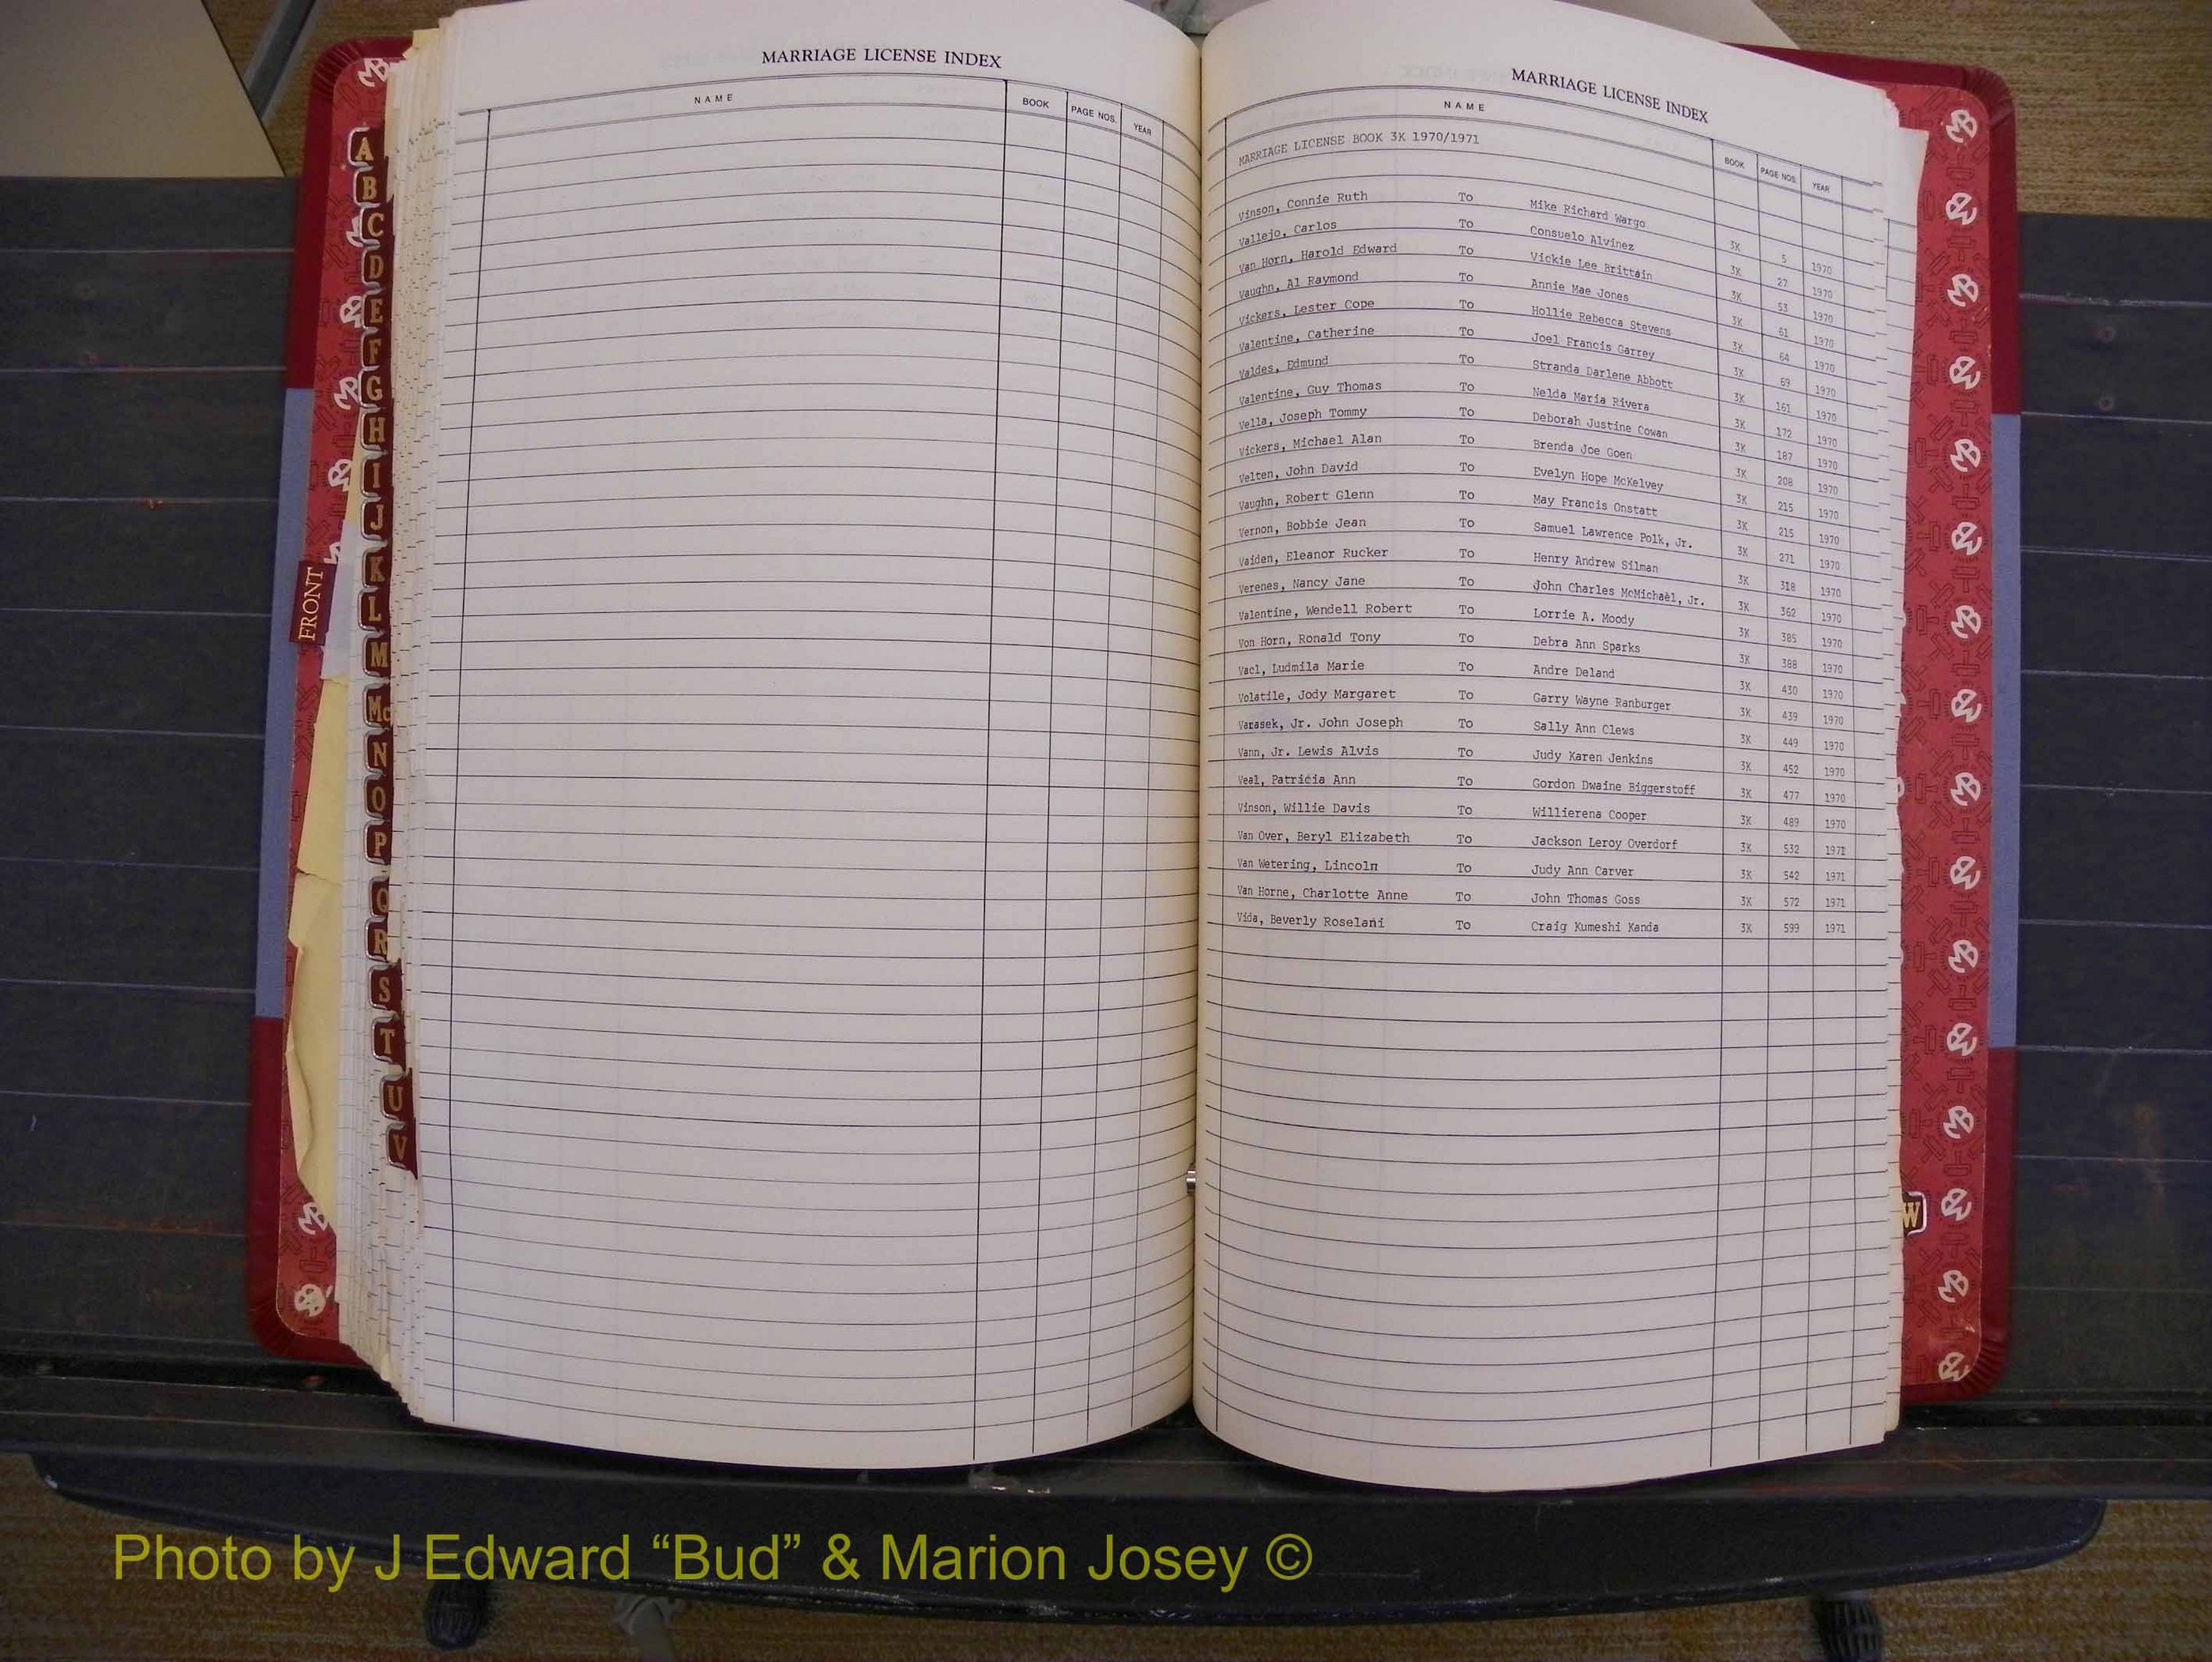 MARRIAGE LICENSE INDEX
NAME BOOK PAGE NOS. YEAR
MARRIAGE LICENSE INDEX
NAME BOOK PAGE NOS. YEAR
MARRIAGE LICENSE BOOK 3K 1970/1971
Vinson, Connie Ruth To Mike Richard Wargo 3K 5 1970
Vallejo, Carlos To Consuelo Alvinez 3K 27 1970
Van Horn, Harold Edward To Vickie Lee Brittain 3K 53 1970
Vaughn, Al Raymond To Annie Mae Jones 3K 61 1970
Vickers, Lester Cope To Hollie Rebecca Stevens 3K 64 1970
Valentine, Catherine To Joel Francis Garrey 3K 69 1970
Valdes, Edmund To Stranda Darlene Abbott 3K 161 1970
Valentine, Guy Thomas To Nelda Maria Rivera 3K 172 1970
Vella, Joseph Tommy To Deborah Justine Cowan 3K 187 1970
Vickers, Michael Alan To Brenda Joe Goen 3K 208 1970
Velten, John David To Evelyn Hope McKelvey 3K 215 1970
Vaughn, Robert Glenn To May Francis Onstatt 3K 215 1970
Vernon, Bobbie Jean To Samuel Lawrence Polk, Jr. 3K 271 1970
Vaiden, Eleanor Rucker To Henry Andrew Silman 3K 318 1970
Verenes, Nancy Jane To John Charles McMichael, Jr. 3K 362 1970
Valentine, Wendell Robert To Lorrie A. Moody 3K 385 1970
Von Horn, Ronald Tony To Debra Ann Sparks 3K 388 1970
Vacl, Ludmila Marie To Andre Deland 3K 430 1970
Volatile, Jody Margaret To Garry Wayne Ranburger 3K 439 1970
Varasek, Jr. John Joseph To Sally Ann Clews 3K 449 1970
Vann, Jr. Lewis Alvis To Judy Karen Jenkins 3K 452 1970
Veal, Patricia Ann To Gordon Dwaine Biggerstoff 3K 477 1970
Vinson, Willie Davis To Willierena Cooper 3K 489 1970
Van Over, Beryl Elizabeth To Jackson Leroy Overdorf 3K 532 1971
Van Wetering, Lincoln To Judy Ann Carver 3K 542 1971
Van Horne, Charlotte Anne To John Thomas Goss 3K 572 1971
Vida, Beverly Roselani To Craig Kumeshi Kanda 3K 599 1971
A
B
C
D
E
F
G
H
I
J
K
L
M
Mc
N
O
P
Q
R
S
T
U
V
FRONT
W
Photo by J Edward “Bud” & Marion Josey ©